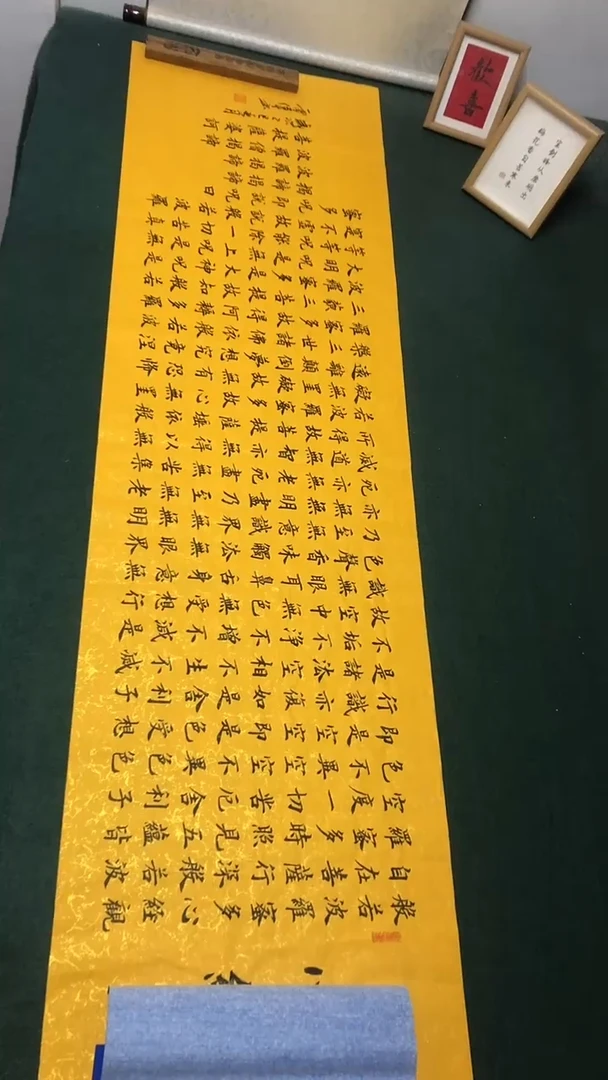 般若波羅蜜多心經觀
自在菩薩行深般若波
羅蜜多時照見五蘊皆
空度一切苦厄舍利子
色不異空空不異色色
即是空空即是色受想
行識亦復如是舍利子
是諸法空相不生不滅
不垢不淨不增不減是
故空中無色無受想行
識無眼耳鼻舌身意無
色聲香味觸法無眼界
乃至無意識界無無明
亦無無明盡乃至無老
死亦無老死盡無苦集
滅道無智亦無得以無
所得故菩提薩埵依般
若波羅蜜多故心無罣
礙無罣礙故無有恐怖
遠離顛倒夢想究竟涅
槃三世諸佛依般若波
羅蜜多故得阿耨多羅
三藐三菩提故知般若
波羅蜜多是大神呪是
大明呪是無上呪是無
等等呪能除一切苦真
寔不虛故說般若波羅
蜜多呪即說呪曰
揭諦揭諦
波羅揭諦
波羅僧揭諦
菩提薩婆訶
歡喜
宝劍锋从磨砺出
梅花香自苦寒来